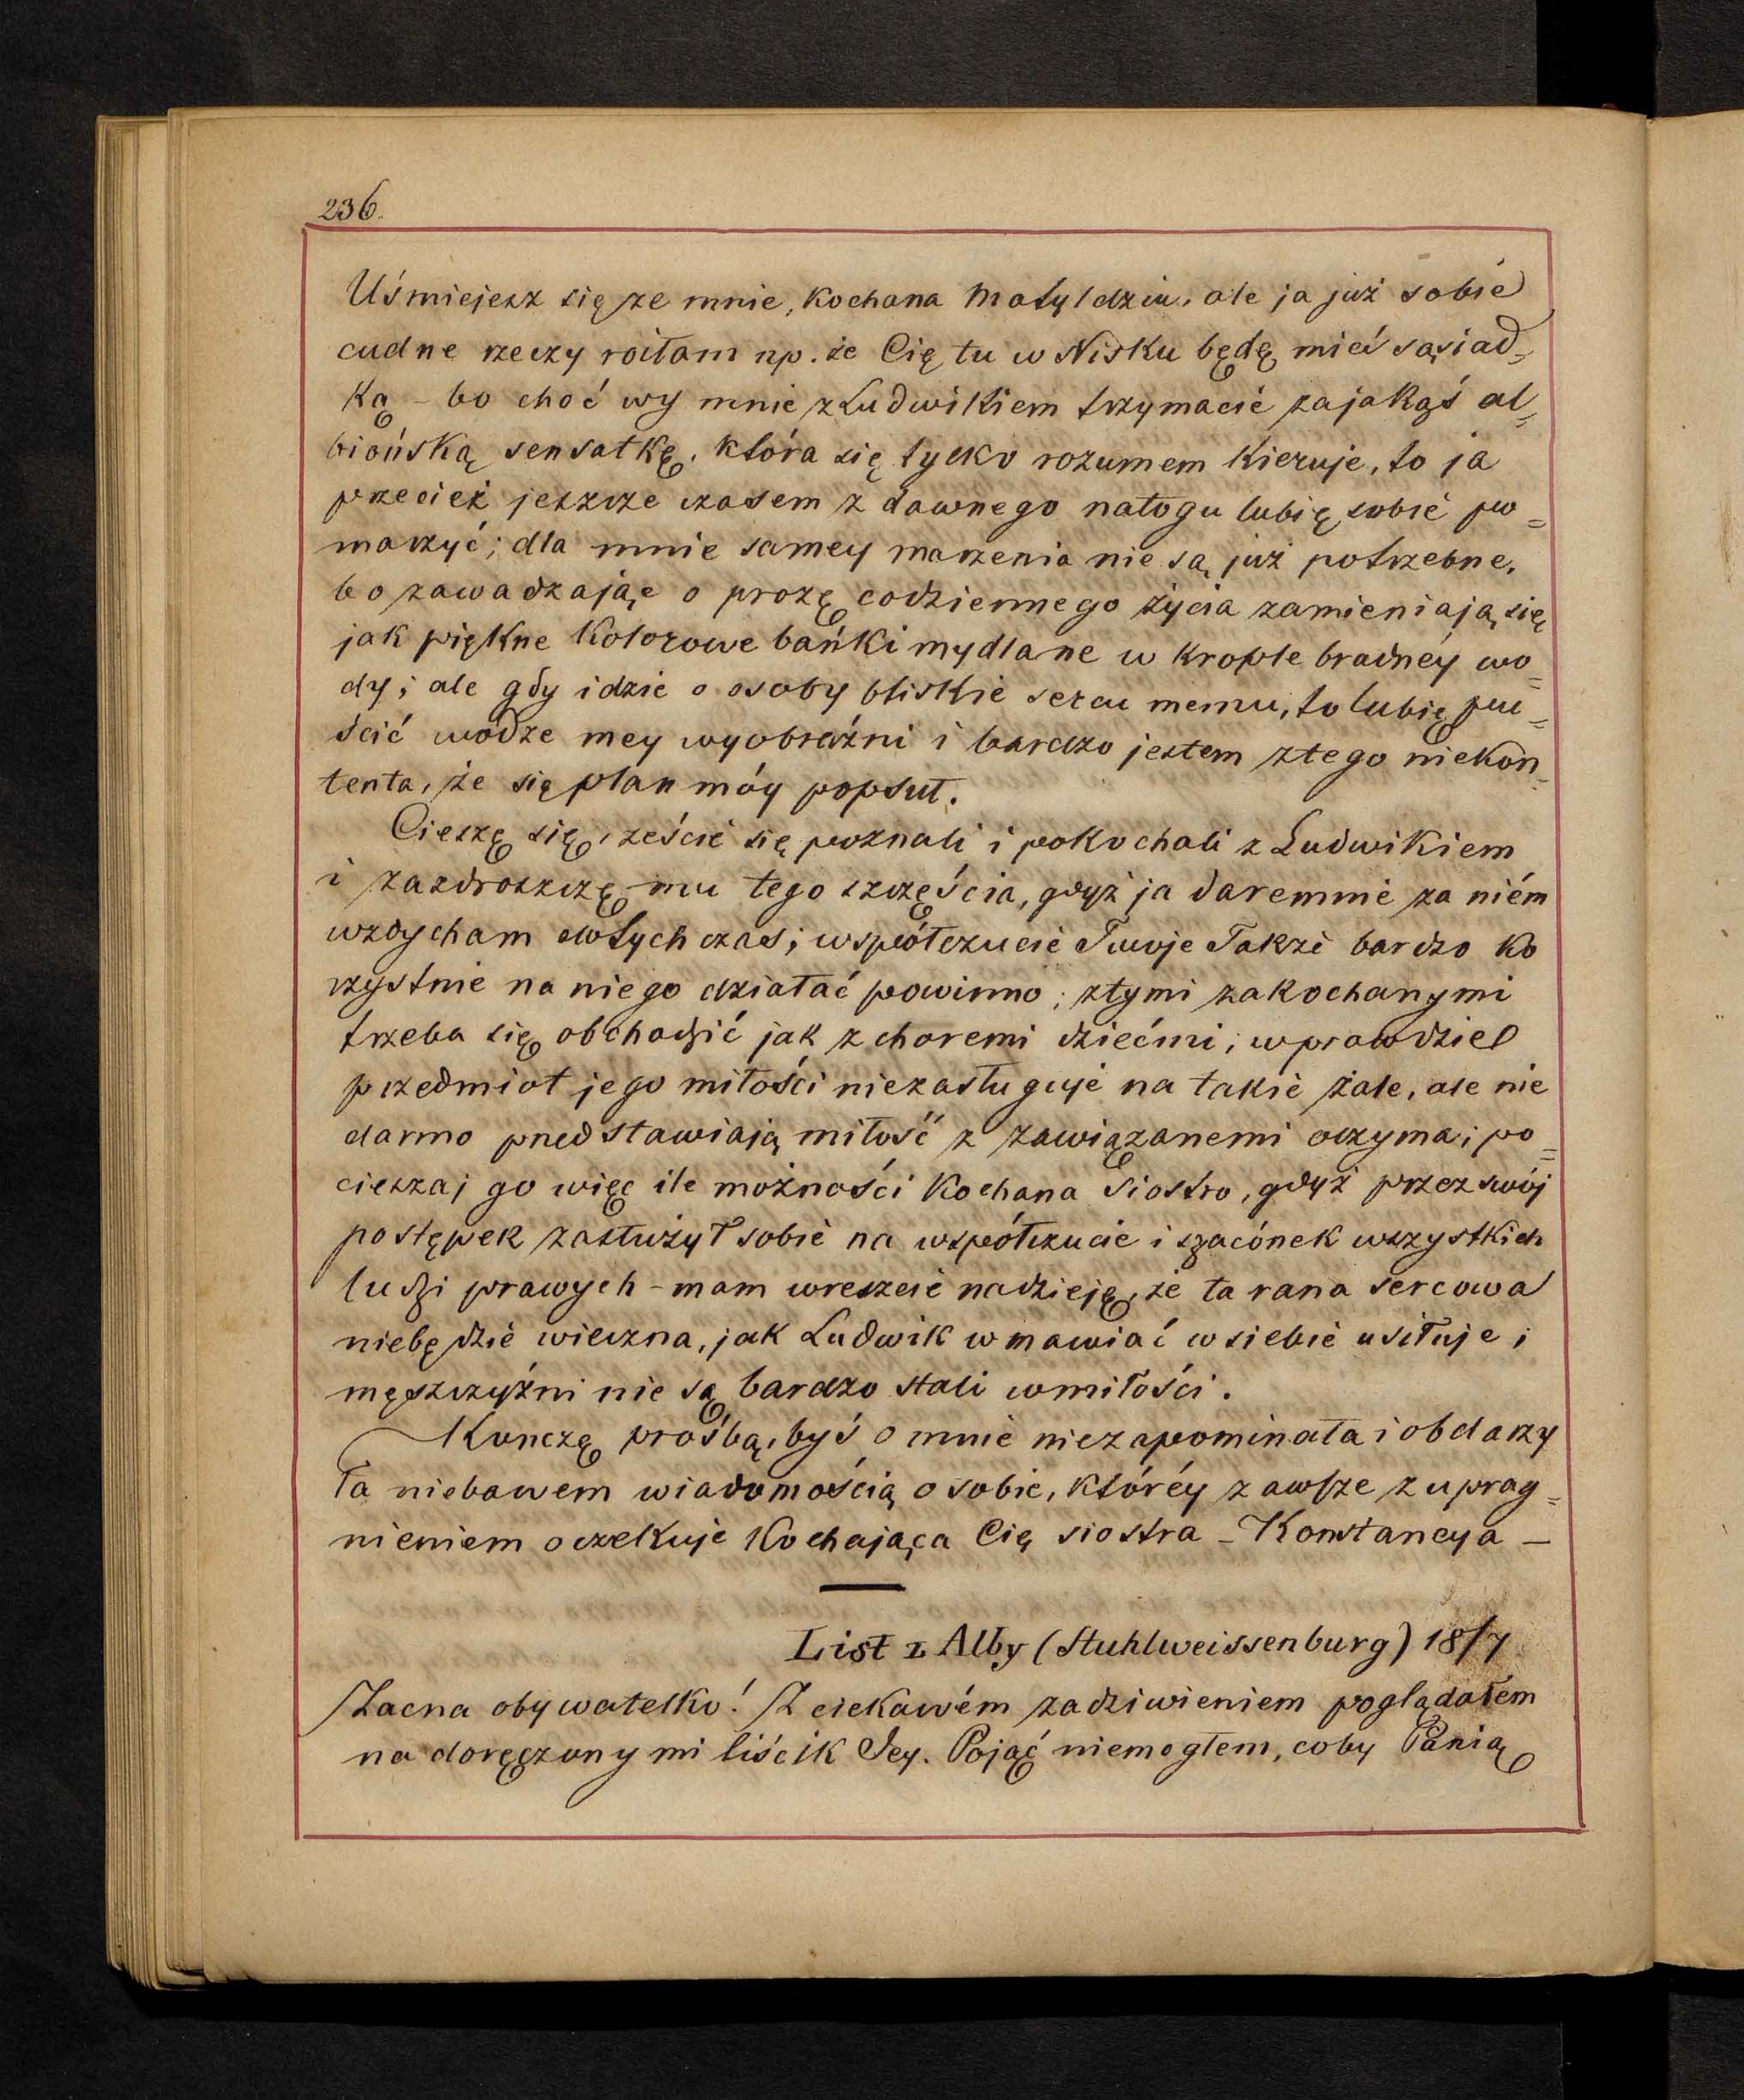 236.
Uśmiejesz się ze mnie, kochana Matyldziu, ale ja już sobie
cudne rzeczy roiłam np. że Cię tu w Nisku będę mieć sąsiad=
ką – bo choć wy mnie z Ludwikiem trzymacie za jakąś al=
biońską sensatkę, która się tylko rozumem kieruje, to ja
przecież jeszcze czasem z dawnego nałogu lubię sobie po=
marzyć; dla mnie samey marzenia nie są już potrzebne,
bo zawadzając o prozę codziennego życia zamieniają się
jak piękne kolorowe bańki mydlane w krople brudnéy wo=
dy; ale gdy idzie o osoby bliskie sercu memu, to lubię pu=
ścić wodze mey wyobraźni i bardzo jestem z tego niekon=
tenta, że się plan móy popsuł.
Cieszę się, żeście się poznali i pokochali z Ludwikiem
i zazdroszczę mu tego szczęścia, gdyż ja daremnie za niém
wzdycham dotychczas; współczucie Twoje także bardzo ko
rzystnie na niego działać powinno; z tymi zakochanymi
trzeba się obchodzić jak z choremi dziećmi; wprawdzie
przedmiot jego miłości niezasługuje na takie żale, ale nie
darmo przedstawiają miłość z zawiązanemi oczyma; po=
cieszaj go więc ile możności kochana Siostro, gdyż przez swój
postępek zasłużył sobie na współczucie i szacónek wszystkich
ludzi prawych – mam wreszcie nadzieję, że ta rana sercowa
niebędzie wieczna, jak Ludwik wmawiać w siebie usiłuje;
męszczyźni nie są bardzo stali w miłości.
Kończę prośbą, byś o mnie niezapominała i obdarzy
ła niebawem wiadomością o sobie, któréy zawsze z uprag=
nieniem oczekuje Kochająca Cię siostra – Konstancya –
List z Alby (Stuhlweissenburg) 18/7
Zacna obywatelko! Z ciekawém zadziwieniem poglądałem
na doręczony mi liścik Jey. Pojąć niemogłem, coby Panią